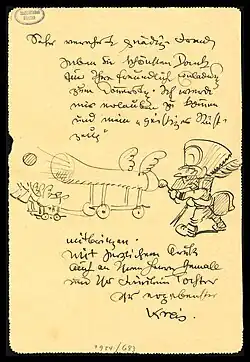 Sehr verehrte gnädige Frau
haben Sie schönsten Dank
für Ihre freundliche Einladung
zum Donnerstag. Ich werde
mir erlauben zu kommen
und mein "geistiges Rüst-
zeug"
mitbringen.
Mit herzlichem Gruß
auch an Ihren Herrn Gemahl
und Ihr Fräulein Tochter
Ihr ergebenster